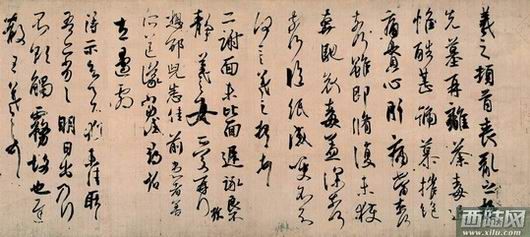 羲之頓首喪亂之極
先墓再離荼毒追
惟酷甚號慕摧絕
痛貫心肝痛當奈何
奈何雖即脩復未獲
奔馳哀毒益深奈何
奈何臨紙感哽不知
何言羲之頓首頓首
二謝面未比面遲詠良
不靜羲之女愛再拜
想邵兒悉佳前患者善
所送議當試尋
左邊劇
得示知足下猶未佳耿耿
吾亦劣劣明日出乃行
不欲觸霧故也遲
散王羲之頓首
西陆网
www.xilu.com